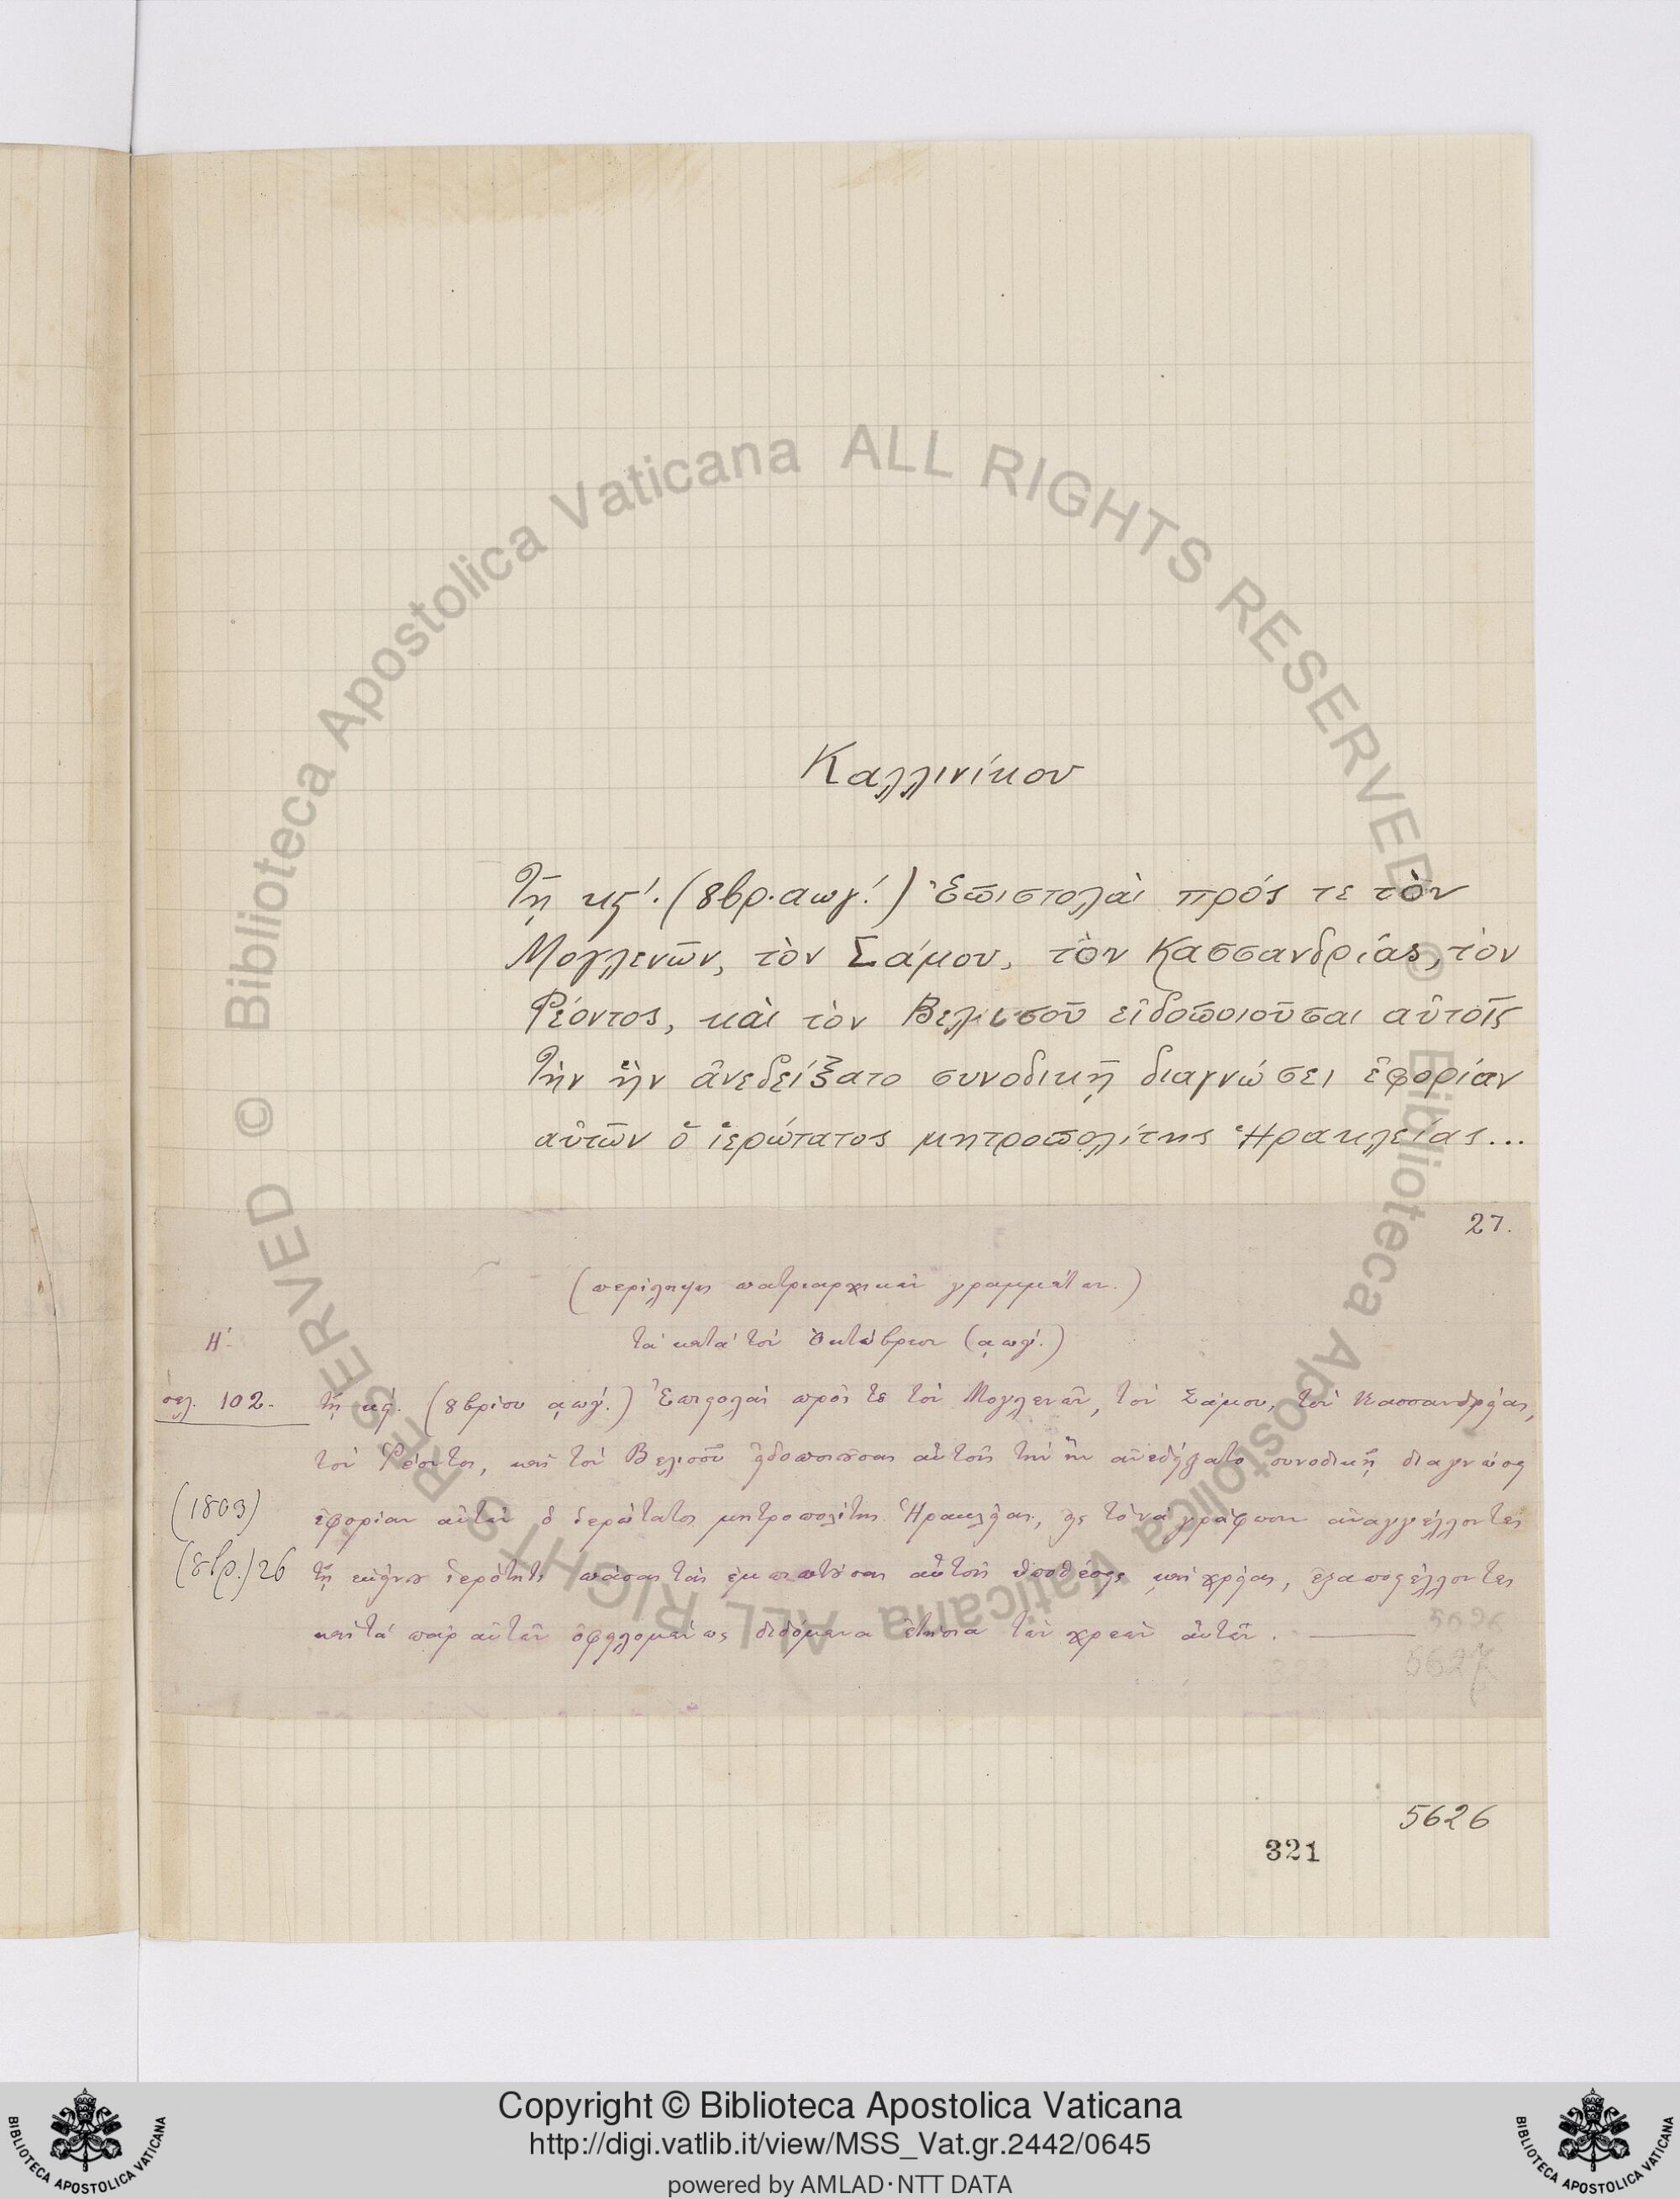 Καλλινίκου
Τῇ κϛ΄. (8βρ. αωγ΄.) Ἐπιστολαὶ πρός τε τὸν
Μογλενῶν, τὸν Σάμου, τὸν Κασσανδρίας, τὸν
Ῥέοντος, καὶ τὸν Βελισσοῦ εἰδοποιοῦσαι αὐτοῖς
Τὴν ἣν ἀνεδείξατο συνοδικῇ διαγνώσει ἐφορίαν
αὐτῶν ὁ ἱερώτατος μητροπολίτης Ἡρακλείας...
27.
(περίληψις πατριαρχικῶν γραμμάτων.)
Η΄.
τὰ κατὰ τὸν Ὀκτώβριον (αωγ΄.)
σελ. 102.
τῇ κϛ΄. (8βρίου αωγ΄.) Ἐπιστολαὶ πρός τε τὸν Μογλενῶν, τὸν Σάμου, τὸν Κασσανδρείας,
τὸν Ῥέοντος, καὶ τὸν Βελισσοῦ εἰδοποιοῦσαι αὐτοῖς τὴν ἣν ἀνεδείξατο συνοδικῇ διαγνώσει
(1803)
ἐφορίαν αὐτῶν ὁ ἱερώτατος μητροπολίτης Ἡρακλείας, εἰς τὸ νὰ γράφωσιν ἀναγγέλλοντες
(8βρ.) 26
τῇ ἐκείνου ἱερότητι πάσας τὰς ἐμπιπτούσας αὐτοῖς ὑποθέσεις καὶ χρείας, ἐξαποστέλλοντες
καὶ τὰ παρ' αὐτῶν ὀφειλομένως διδόμενα ἐτήσια τῶν χρεῶν αὐτῶν.
5626
5627
5626
321
Biblioteca Apostolica Vaticana ALL RIGHTS RESERVED ©
Biblioteca Apostolica Vaticana ALL RIGHTS RESERVED ©
Copyright © Biblioteca Apostolica Vaticana
http://digi.vatlib.it/view/MSS_Vat.gr.2442/0645
powered by AMLAD·NTT DATA
BIBLIOTECA APOSTOLICA VATICANA
BIBLIOTECA APOSTOLICA VATICANA